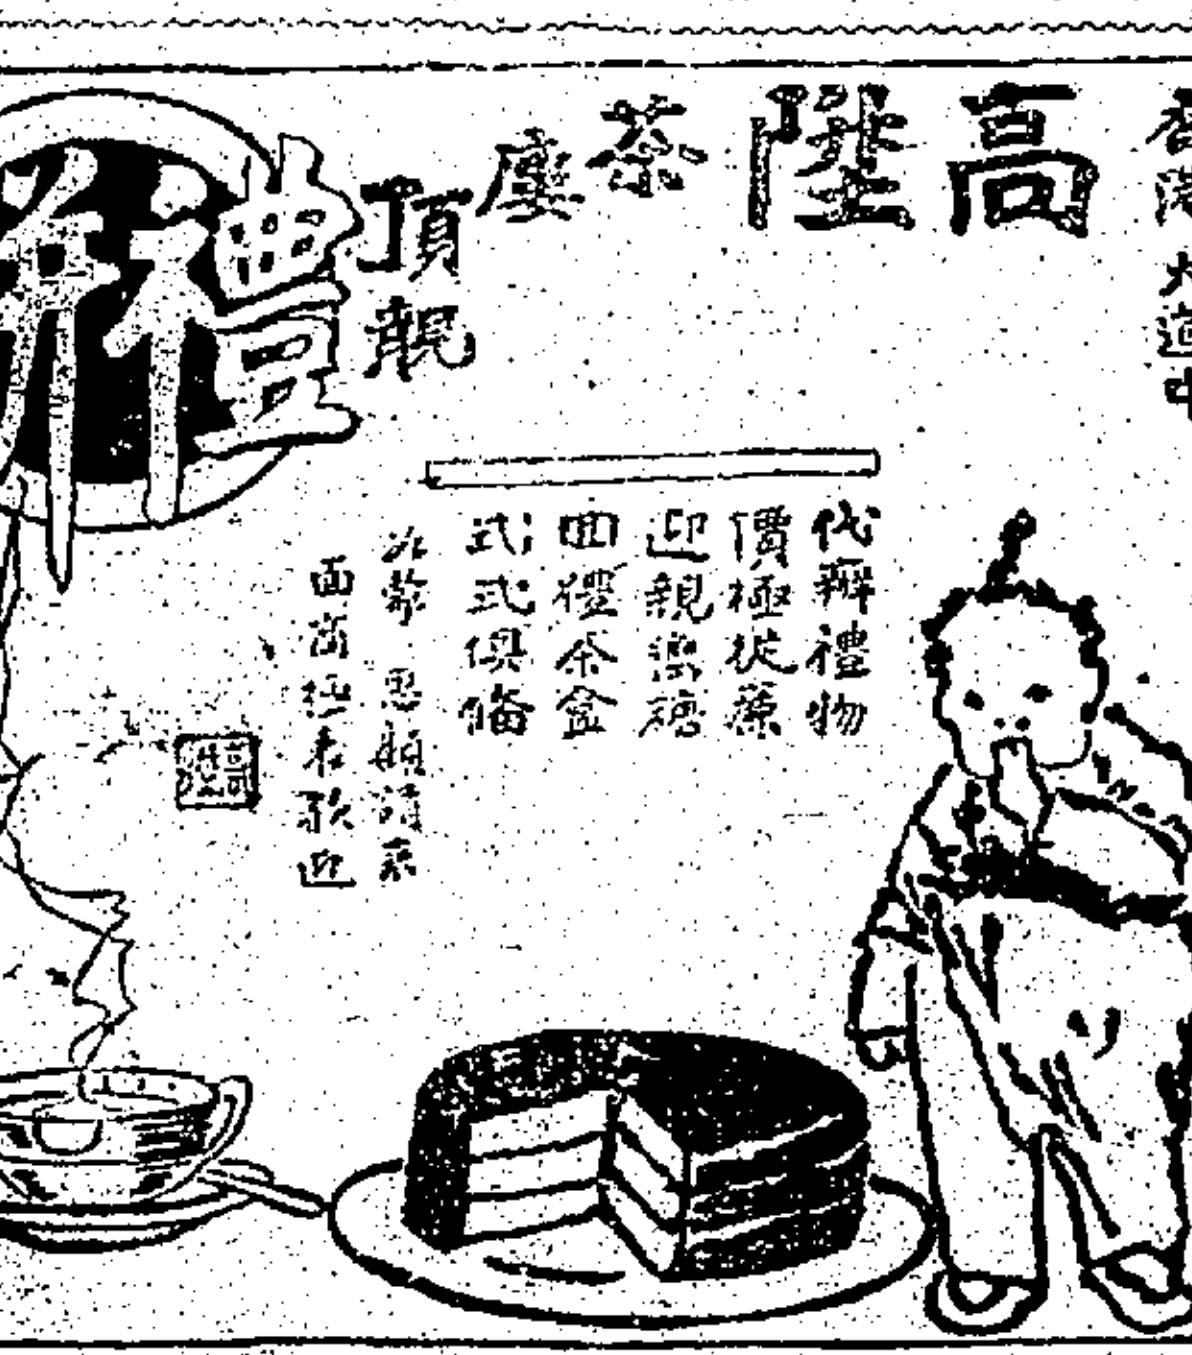 大道中
高陞茶廔
頂靚
禮
代辦禮物
價極從廉
迎親
回禮茶盒
式式俱備
如蒙 惠顧請來
面商極表歡迎